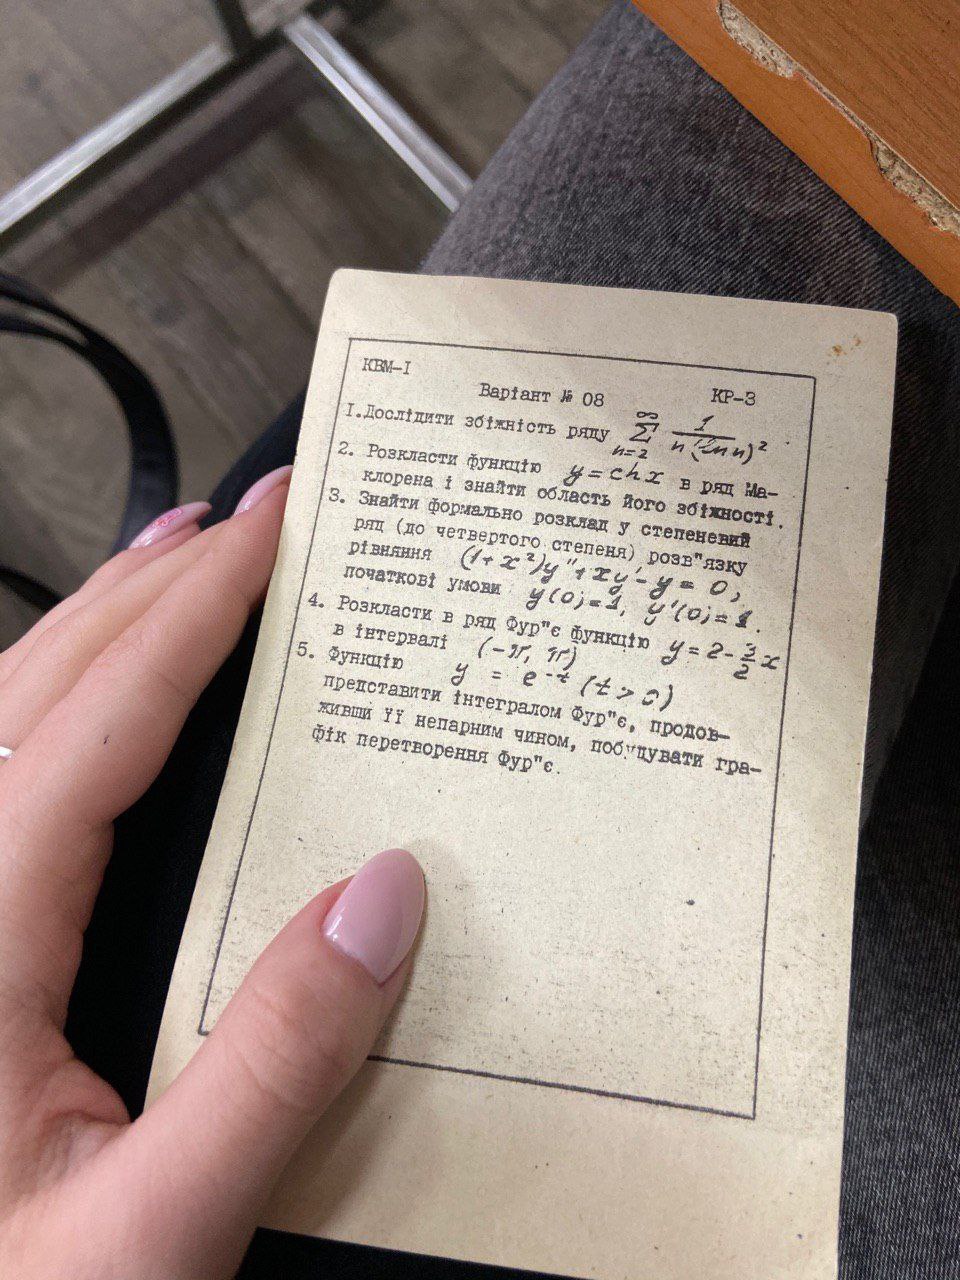 КВМ-I
Варіант № 08 КР-3
I.Дослідити збіжність ряду ∞ Σ n=2 1/(n(ln n)²).
2. Розкласти функцію y=chx в ряд Ма-
клорена і знайти область його збіжності.
3. Знайти формально розклад у степеневий
ряд (до четвертого степеня) розв"язку
рівняння (1+x²)y"+xy'-y=0,
початкові умови y(0)=1, y'(0)=1.
4. Розкласти в ряд Фур"є функцію y=2-3/2x
в інтервалі (-π, π)
5. Функцію y = e^-t (t>0)
представити інтегралом Фур"є, продов-
живши її непарним чином, побудувати гра-
фік перетворення Фур"є.